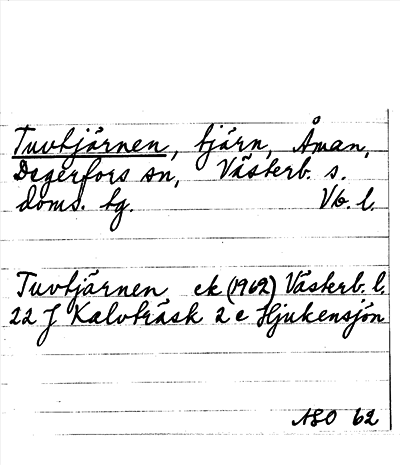 Tuvtjärnen, tjärn, Åman,
Degerfors sn, Västerb. s.
doms. tg. Vb. l.
Tuvtjärnen ek (1962) Västerb. l.
22 J Kalvträsk 2 e Hjukensjön
ASO 62